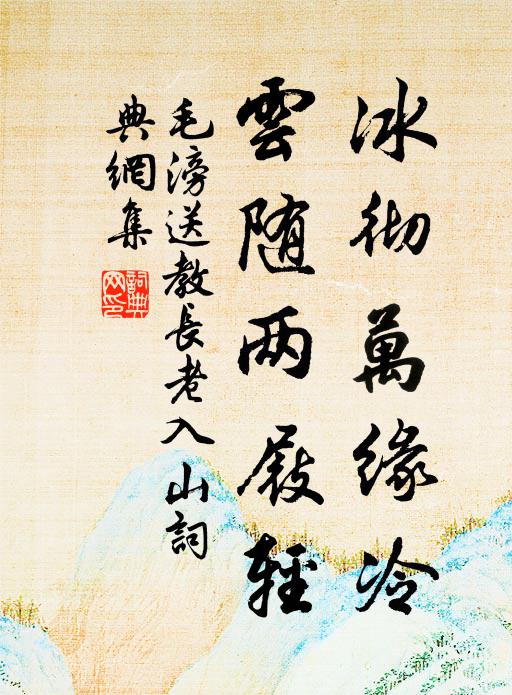 冰彻萬缘冷
雲随两屐輕
毛滂送教長老入山詞
典網集
詞典
网印